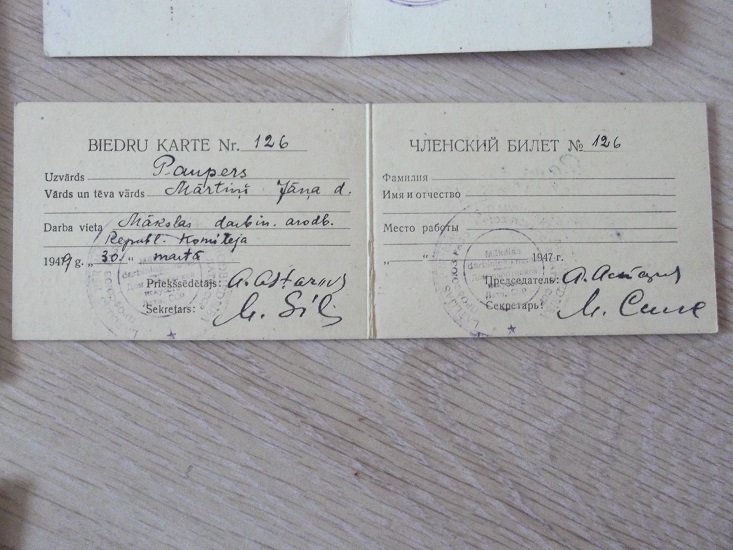 BIEDRU KARTE Nr. 126
Uzvārds Paupers
Vārds un tēva vārds Mārtiņš Jāņa d.
Darba vieta Mākslas darbin. arodb.
Republ. Komiteja
1949 g. „30„ martā
Priekšsēdetājs:
Sekretars:
ЧЛЕНСКИЙ БИЛЕТ № 126
Фамилия
Имя и отчество
Место работы
„ “ 1947 г.
Председатель:
Секретарь: